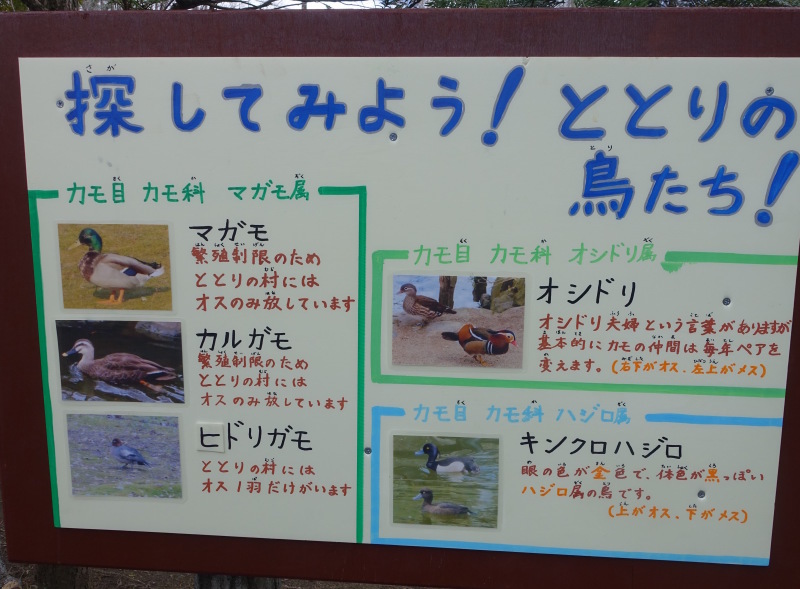 探してみよう！ととりの
鳥たち！
カモ目 カモ科 マガモ属
マガモ
繁殖制限のため
ととりの村には
オスのみ放しています
カルガモ
繁殖制限のため
ととりの村には
オスのみ放しています
ヒドリガモ
ととりの村には
オス1羽だけがいます
カモ目 カモ科 オシドリ属
オシドリ
オシドリ夫婦という言葉がありますが
基本的にカモの仲間は毎年ペアを
変えます。(右下がオス、左上がメス)
カモ目 カモ科 ハジロ属
キンクロハジロ
眼の色が金色で、体色が黒っぽい
ハジロ属の鳥です。
(上がオス、下がメス)